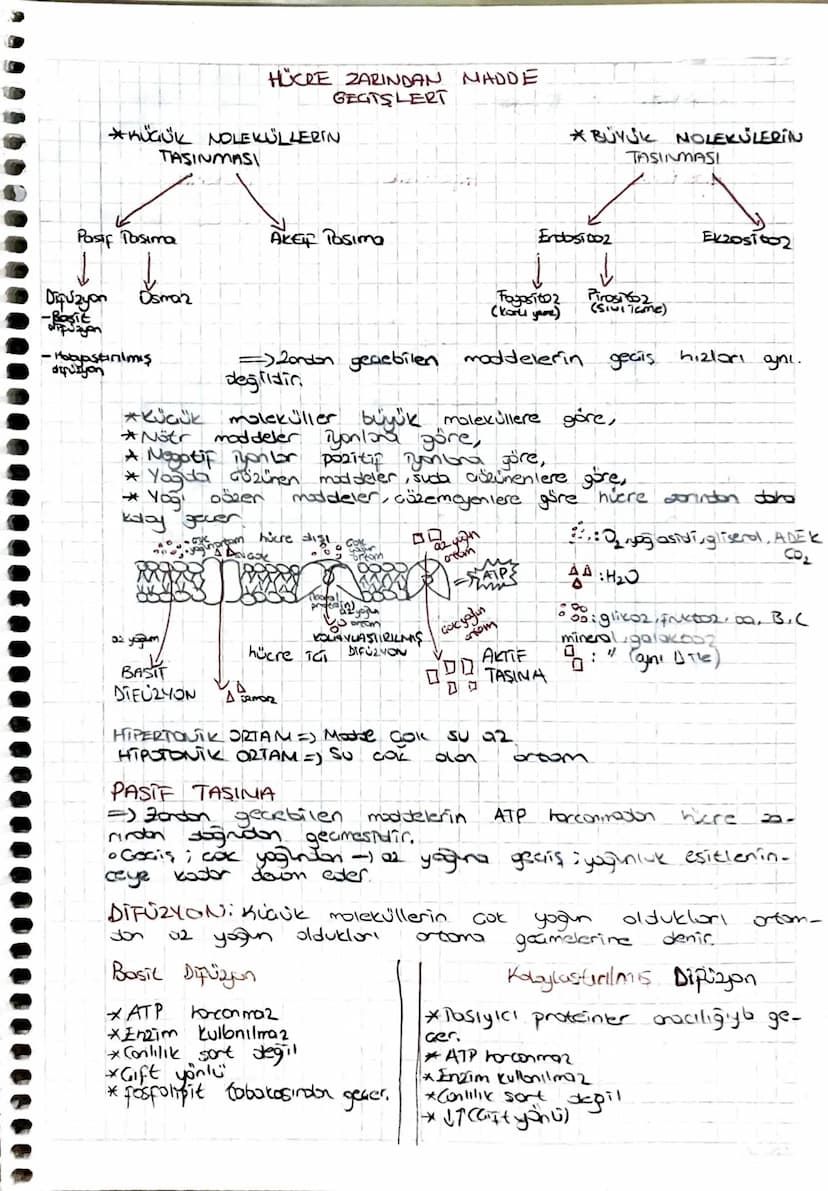 HÜCRE ZARINDAN MADDE
GEÇİŞLERİ
*KÜÇÜK MOLEKÜLLERİN
TAŞINMASI
*BÜYÜK MOLEKÜLERİN
TAŞINMASI
Pasif Taşıma
Aktif Taşıma
Endositoz
Ekzositoz
Difüzyon
-Basit difüzyon
-Kolaylaştırılmış difüzyon
Osmoz
Fagositoz
(Katı yeme)
Pinositoz
(Sıvı içme)
=> Zardan geçebilen maddelerin geçiş hızları aynı
değildir.
*Küçük moleküller büyük moleküllere göre,
*Nötr maddeler iyonlara göre,
*Negatif iyonlar pozitif iyonlara göre,
*Yağda çözünen maddeler, suda çözünenlere göre,
*Yağı çözen maddeler, çözemeyenlere göre hücre zarından daha
kolay geçer.
çok yoğun ortam
hücre dışı
çok yoğun ortam
az yoğun ortam
=> ATP
az yoğun ortam
çok yoğun ortam
az yoğun
BASİT
DİFÜZYON
osmoz
hücre içi
KOLAYLAŞTIRILMIŞ
DİFÜZYON
AKTİF
TAŞINA
: O2 yağ asidi, gliserol, ADEK
CO2
: H2O
: glikoz, fruktoz, aa, B,C
mineral, galaktoz
: " (aynı ile)
HİPERTONİK ORTAM => Madde çok su az
HİPOTONİK ORTAM => Su çok olan ortam
PASİF TAŞIMA
=> Zardan geçebilen maddelerin ATP harcanmadan hücre za-
rından doğrudan geçmesidir.
o Geçiş; çok yoğundan -> az yoğuna geçiş; yoğunluk eşitlenin-
ceye kadar devam eder.
DİFÜZYON: Küçük moleküllerin çok yoğun oldukları ortam-
dan az yoğun oldukları ortama geçmelerine denir.
Basit Difüzyon
*ATP harcanmaz
*Enzim kullanılmaz
*Canlılık şart değil
*Çift yönlü
*fosfolipit tabakasından geçer.
Kolaylaştırılmış Difüzyon
*Taşıyıcı proteinler aracılığıyla ge-
çer.
*ATP harcanmaz
*Enzim kullanılmaz
*Canlılık şart değil
*↓↑(Çift yönlü)